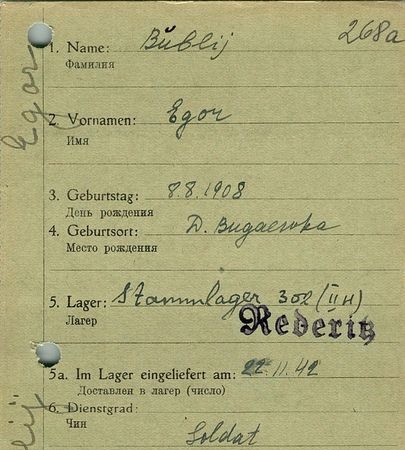 268a
1. Name: Bŭblij
Фамилия
Egor
2. Vornamen: Egor
Имя
3. Geburtstag: 8.8.1908
День рождения
4. Geburtsort: D.
Место рождения
5. Lager: Stammlager 302 (II H)
Лагер
Rederitz
5a. Im Lager eingeliefert am: 22.11.42
Доставлен в лагер (число)
6. Dienstgrad:
Чин
Soldat
lij